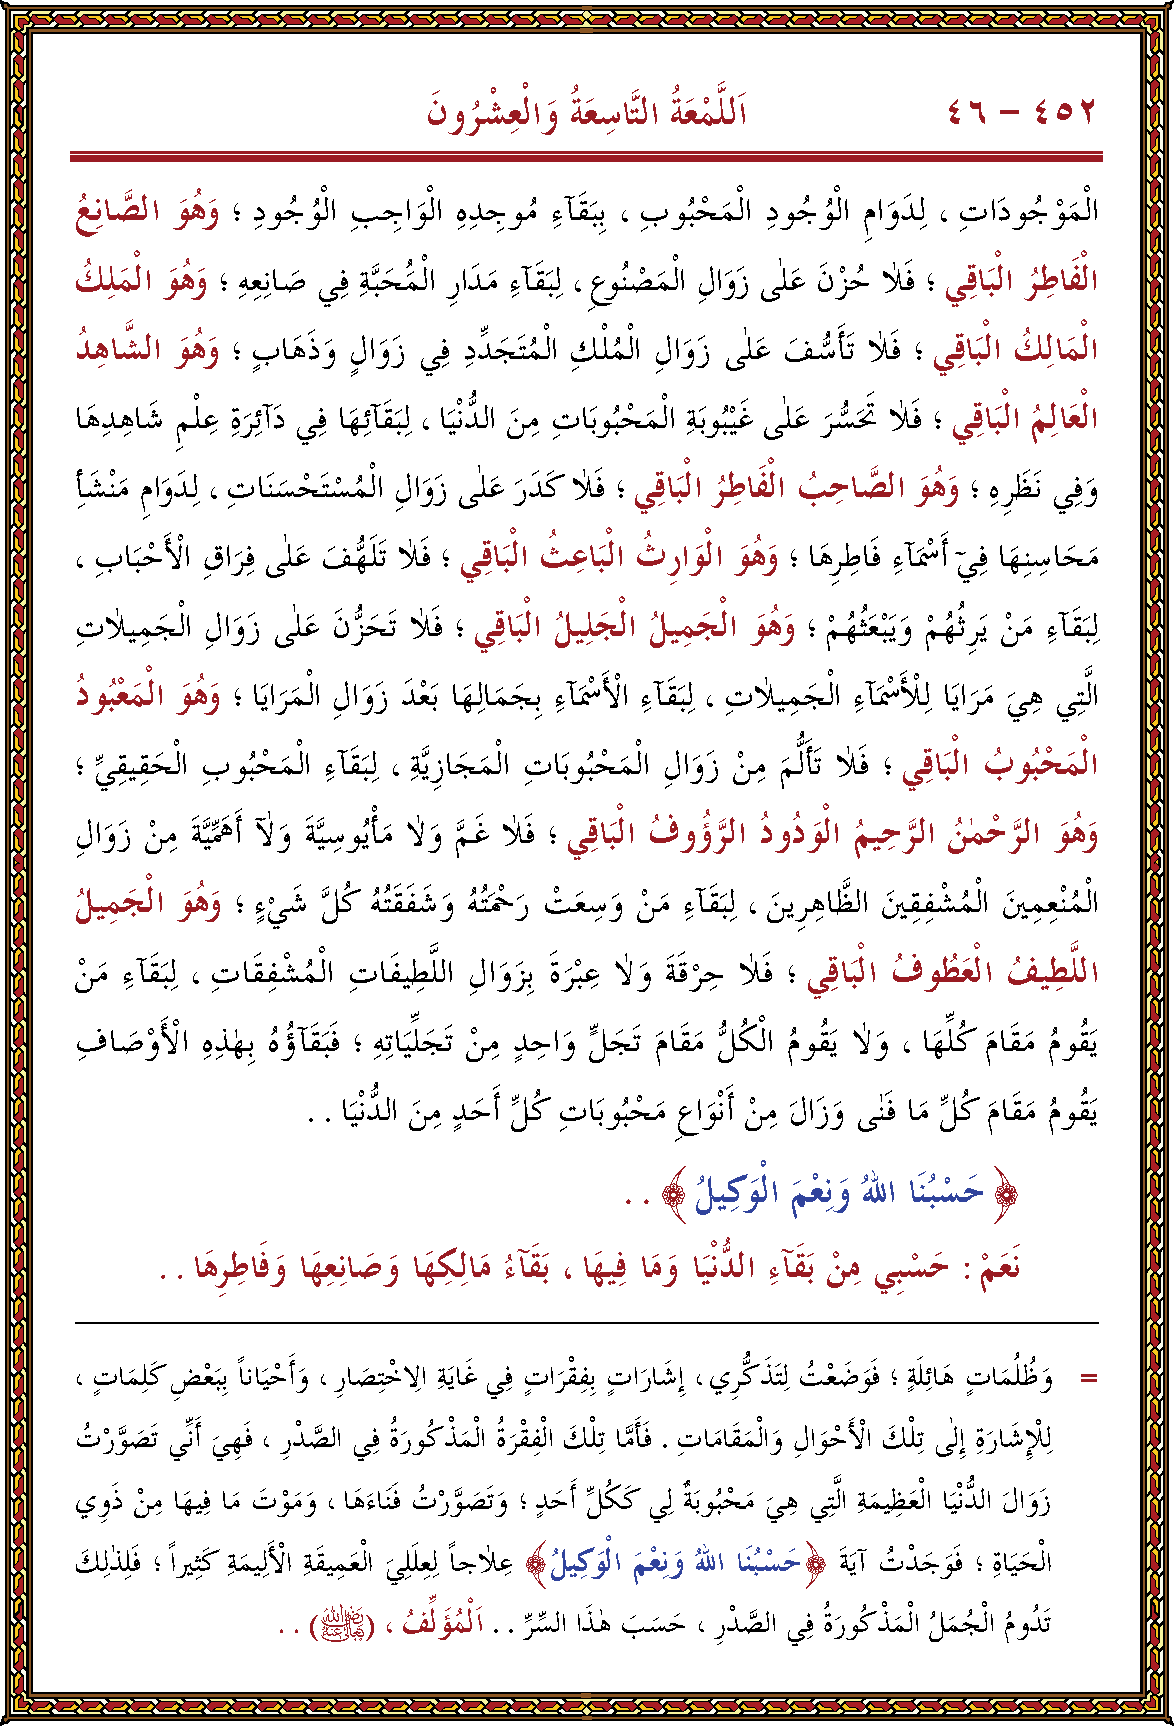 ٤٥٢ – ٤٦ اَللَّمْعَةُ التَّاسِعَةُ وَالْعِشْرُونَ
الْمَوْجُودَاتِ ، لِدَوَامِ الْوُجُودِ الْمَحْبُوبِ ، بِبَقَآءِ مُوجِدِهِ الْوَاجِبِ الْوُجُودِ ؛ وَهُوَ الصَّانِعُ
الْفَاطِرُ الْبَاقِي ؛ فَلَا حُزْنَ عَلٰى زَوَالِ الْمَصْنُوعِ ، لِبَقَآءِ مَدَارِ الْمَحَبَّةِ فِي صَانِعِهِ ؛ وَهُوَ الْمَلِكُ
الْمَالِكُ الْبَاقِي ؛ فَلَا تَأَسُّفَ عَلٰى زَوَالِ الْمُلْكِ الْمُتَجَدِّدِ فِي زَوَالٍ وَذَهَابٍ ؛ وَهُوَ الشَّاهِدُ
الْعَالِمُ الْبَاقِي ؛ فَلَا تَحَسُّرَ عَلٰى غَيْبُوبَةِ الْمَحْبُوبَاتِ مِنَ الدُّنْيَا ، لِبَقَآئِهَا فِي دَآئِرَةِ عِلْمِ شَاهِدِهَا
وَفِي نَظَرِهِ ؛ وَهُوَ الصَّاحِبُ الْفَاطِرُ الْبَاقِي ؛ فَلَا كَدَرَ عَلٰى زَوَالِ الْمُسْتَحْسَنَاتِ ، لِدَوَامِ مَنْشَأِ
مَحَاسِنِهَا فِيٓ أَسْمَآءِ فَاطِرِهَا ؛ وَهُوَ الْوَارِثُ الْبَاعِثُ الْبَاقِي ؛ فَلَا تَلَهُّفَ عَلٰى فِرَاقِ الْأَحْبَابِ ،
لِبَقَآءِ مَنْ يَرِثُهُمْ وَيَبْعَثُهُمْ ؛ وَهُوَ الْجَمِيلُ الْجَلِيلُ الْبَاقِي ؛ فَلَا تَحَزُّنَ عَلٰى زَوَالِ الْجَمِيلَاتِ
الَّتِي هِيَ مَرَايَا لِلْأَسْمَآءِ الْجَمِيلَاتِ ، لِبَقَآءِ الْأَسْمَآءِ بِجَمَالِهَا بَعْدَ زَوَالِ الْمَرَايَا ؛ وَهُوَ الْمَعْبُودُ
الْمَحْبُوبُ الْبَاقِي ؛ فَلَا تَأَلُّمَ مِنْ زَوَالِ الْمَحْبُوبَاتِ الْمَجَازِيَّةِ ، لِبَقَآءِ الْمَحْبُوبِ الْحَقِيقِيِّ ؛
وَهُوَ الرَّحْمٰنُ الرَّحِيمُ الْوَدُودُ الرَّؤُوفُ الْبَاقِي ؛ فَلَا غَمَّ وَلَا مَأْيُوسِيَّةَ وَلَآ أَهَمِّيَّةَ مِنْ زَوَالِ
الْمُنْعِمِينَ الْمُشْفِقِينَ الظَّاهِرِينَ ، لِبَقَآءِ مَنْ وَسِعَتْ رَحْمَتُهُ وَشَفَقَتُهُ كُلَّ شَيْءٍ ؛ وَهُوَ الْجَمِيلُ
اللَّطِيفُ الْعَطُوفُ الْبَاقِي ؛ فَلَا حِرْقَةَ وَلَا عِبْرَةَ بِزَوَالِ اللَّطِيفَاتِ الْمُشْفِقَاتِ ، لِبَقَآءِ مَنْ
يَقُومُ مَقَامَ كُلِّهَا ، وَلَا يَقُومُ الْكُلُّ مَقَامَ تَجَلٍّ وَاحِدٍ مِنْ تَجَلِّيَاتِهِ ؛ فَبَقَآؤُهُ بِهٰذِهِ الْأَوْصَافِ
يَقُومُ مَقَامَ كُلِّ مَا فَنٰى وَزَالَ مِنْ أَنْوَاعِ مَحْبُوبَاتِ كُلِّ أَحَدٍ مِنَ الدُّنْيَا . .
﴿حَسْبُنَا اللّٰهُ وَنِعْمَ الْوَكِيلُ﴾ . .
نَعَمْ : حَسْبِي مِنْ بَقَآءِ الدُّنْيَا وَمَا فِيهَا ، بَقَآءُ مَالِكِهَا وَصَانِعِهَا وَفَاطِرِهَا . .
= وَظُلُمَاتٍ هَائِلَةٍ ؛ فَوَضَعْتُ لِتَذَكُّرِي ، إِشَارَاتٍ بِفِقْرَاتٍ فِي غَايَةِ الِاخْتِصَارِ ، وَأَحْيَاناً بِبَعْضِ كَلِمَاتٍ ،
لِلْإِشَارَةِ إِلٰى تِلْكَ الْأَحْوَالِ وَالْمَقَامَاتِ . فَأَمَّا تِلْكَ الْفِقْرَةُ الْمَذْكُورَةُ فِي الصَّدْرِ ، فَهِيَ أَنِّي تَصَوَّرْتُ
زَوَالَ الدُّنْيَا الْعَظِيمَةِ الَّتِي هِيَ مَحْبُوبَةٌ لِي كَكُلِّ أَحَدٍ ؛ وَتَصَوَّرْتُ فَنَاءَهَا ، وَمَوْتَ مَا فِيهَا مِنْ ذَوِي
الْحَيَاةِ ؛ فَوَجَدْتُ آيَةَ ﴿حَسْبُنَا اللّٰهُ وَنِعْمَ الْوَكِيلُ﴾ عِلَاجاً لِعِلَلِيَ الْعَمِيقَةِ الْأَلِيمَةِ كَثِيراً ؛ فَلِذٰلِكَ
تَدُومُ الْجُمَلُ الْمَذْكُورَةُ فِي الصَّدْرِ ، حَسَبَ هٰذَا السِّرِّ . . اَلْمُؤَلِّفُ ، (رضي الله تعالى عنه) . .